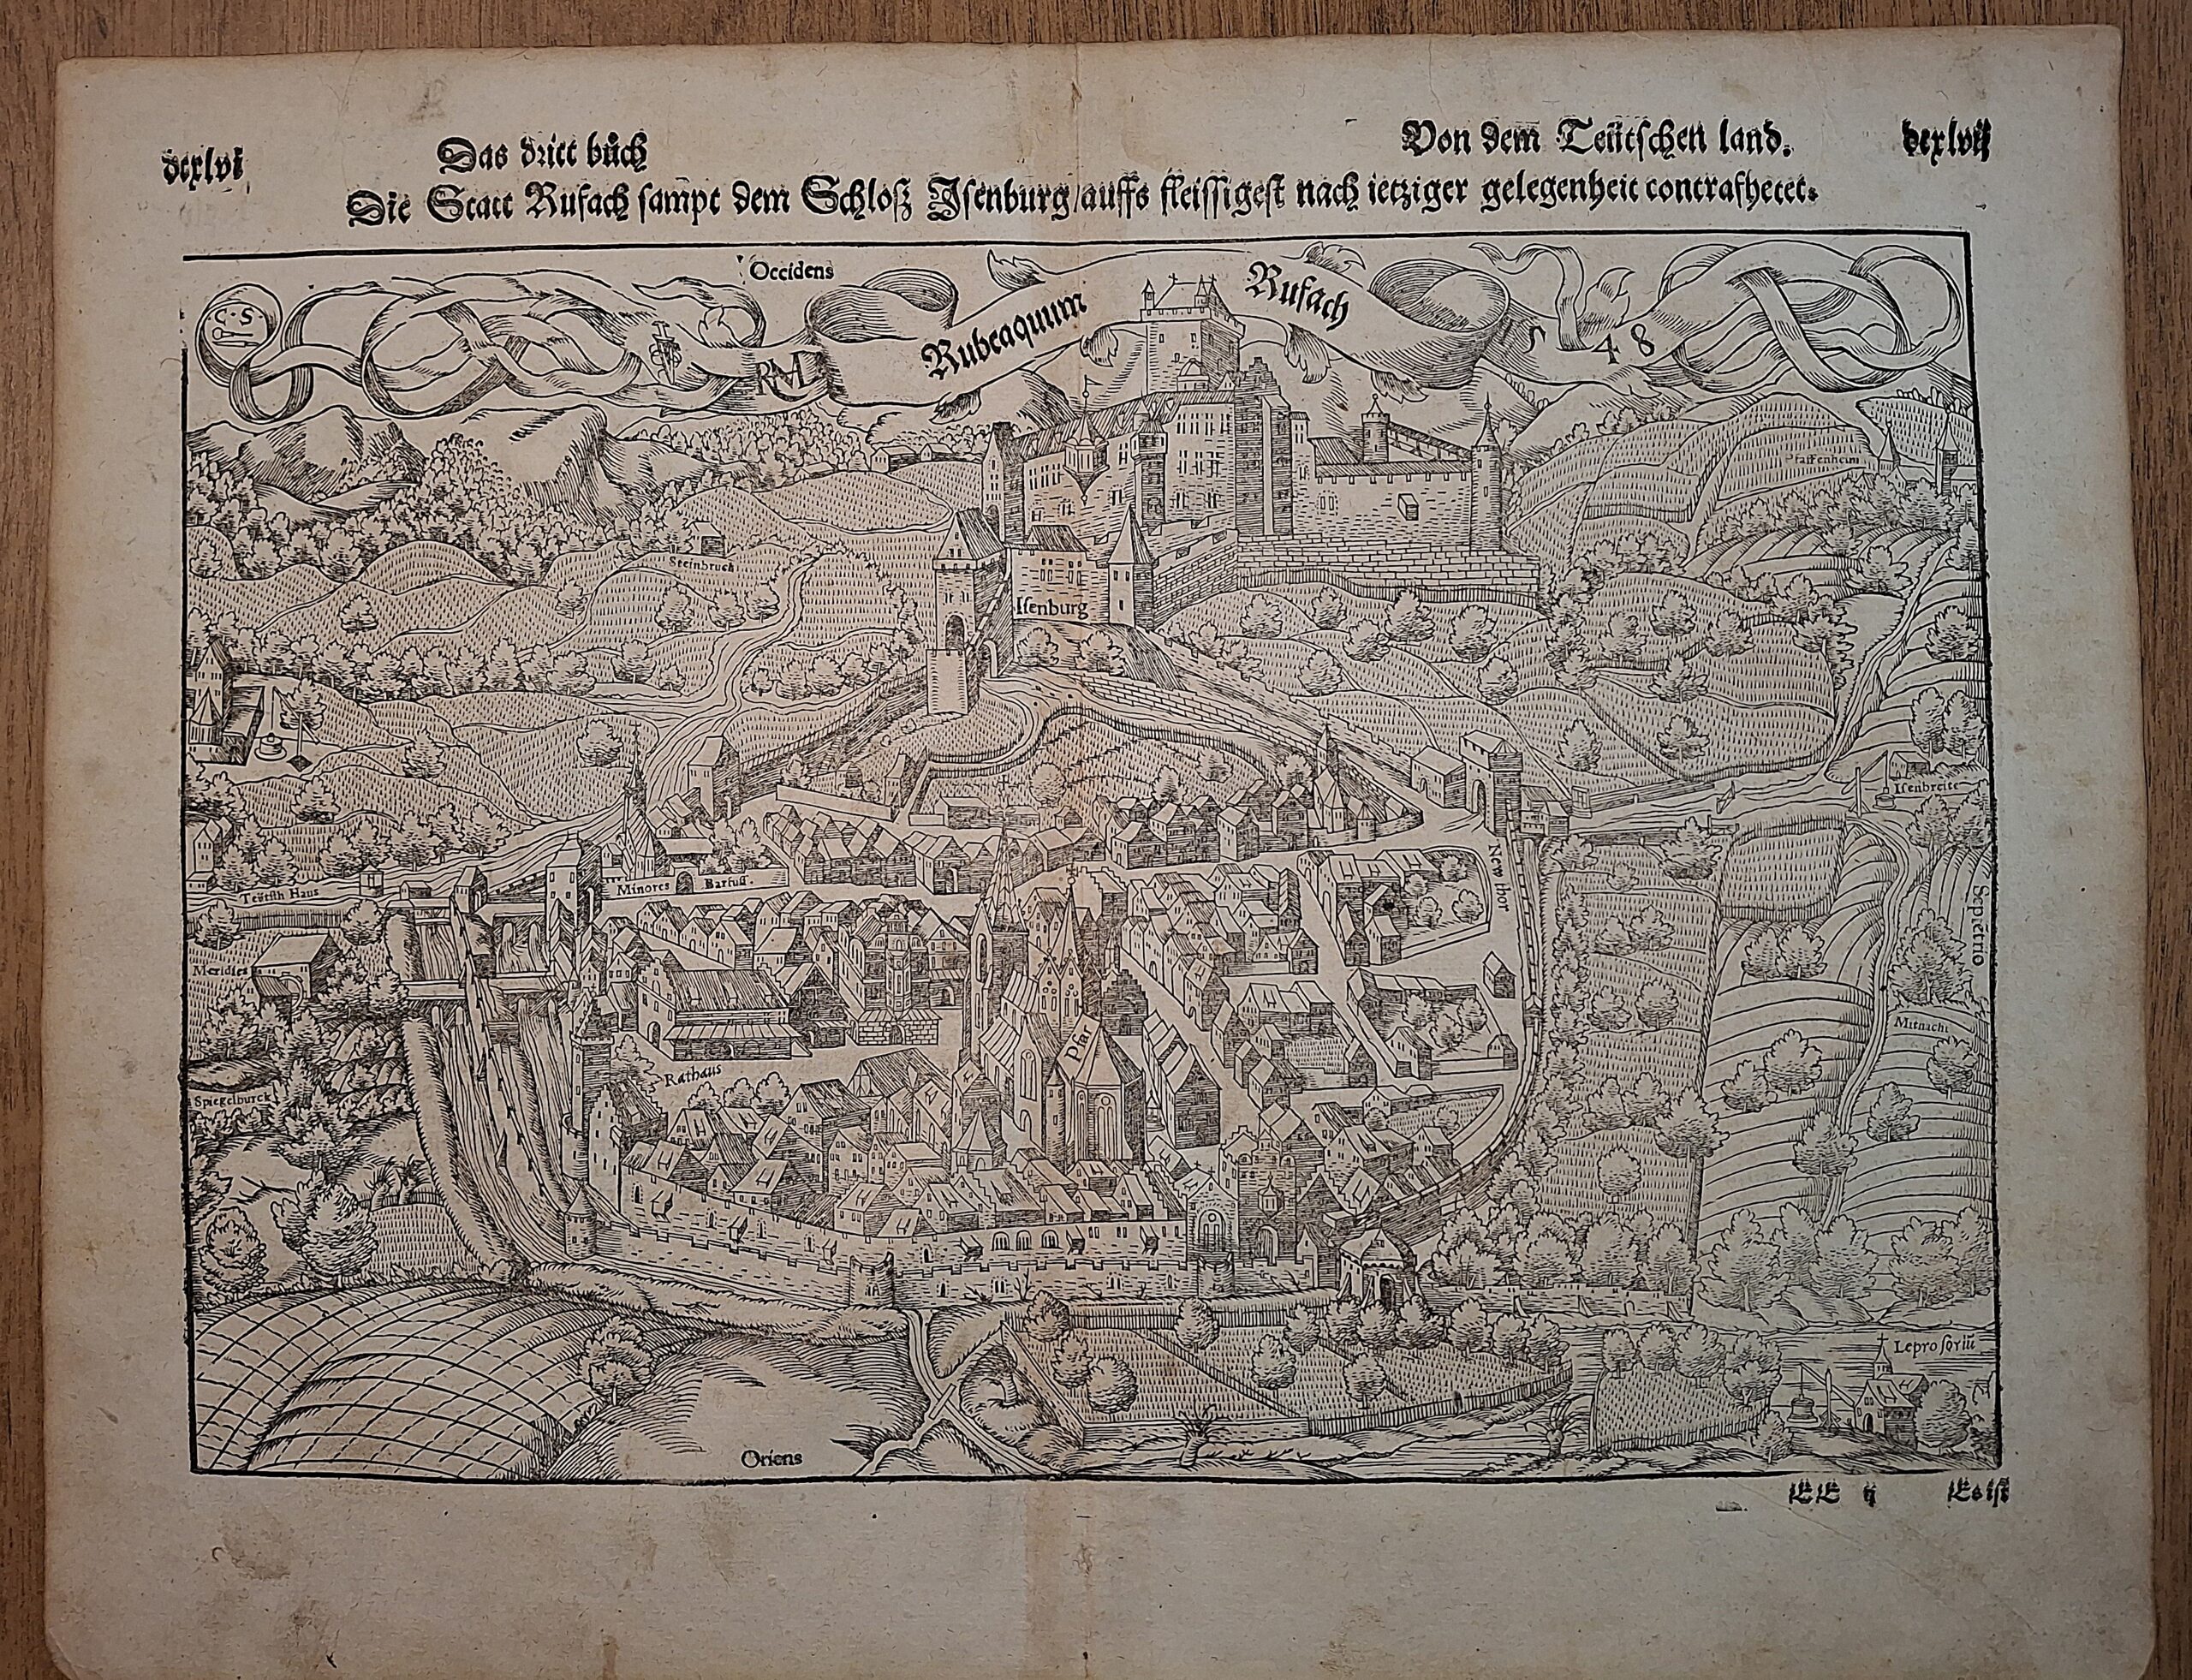 dcxlvi Das dritt bůch Von dem Teütschen land. dcxlvij
Die Statt Rufach sampt dem Schloß Isenburg/auffs fleissigest nach ietziger gelegenheit contrafhetet.
Occidens
C S
Rubeaquum Rufach
RMD
1 5 4 8
Pfaffenheim
Steinbruch
Isenburg
Isenbreite
New thor
Teütsch Haus
Minores Barfuss.
Septētrio
Meridies
Mitnacht
Pfar
Rathaus
Spiegelburck
Leprosoriū
Oriens
EE ij Es ist